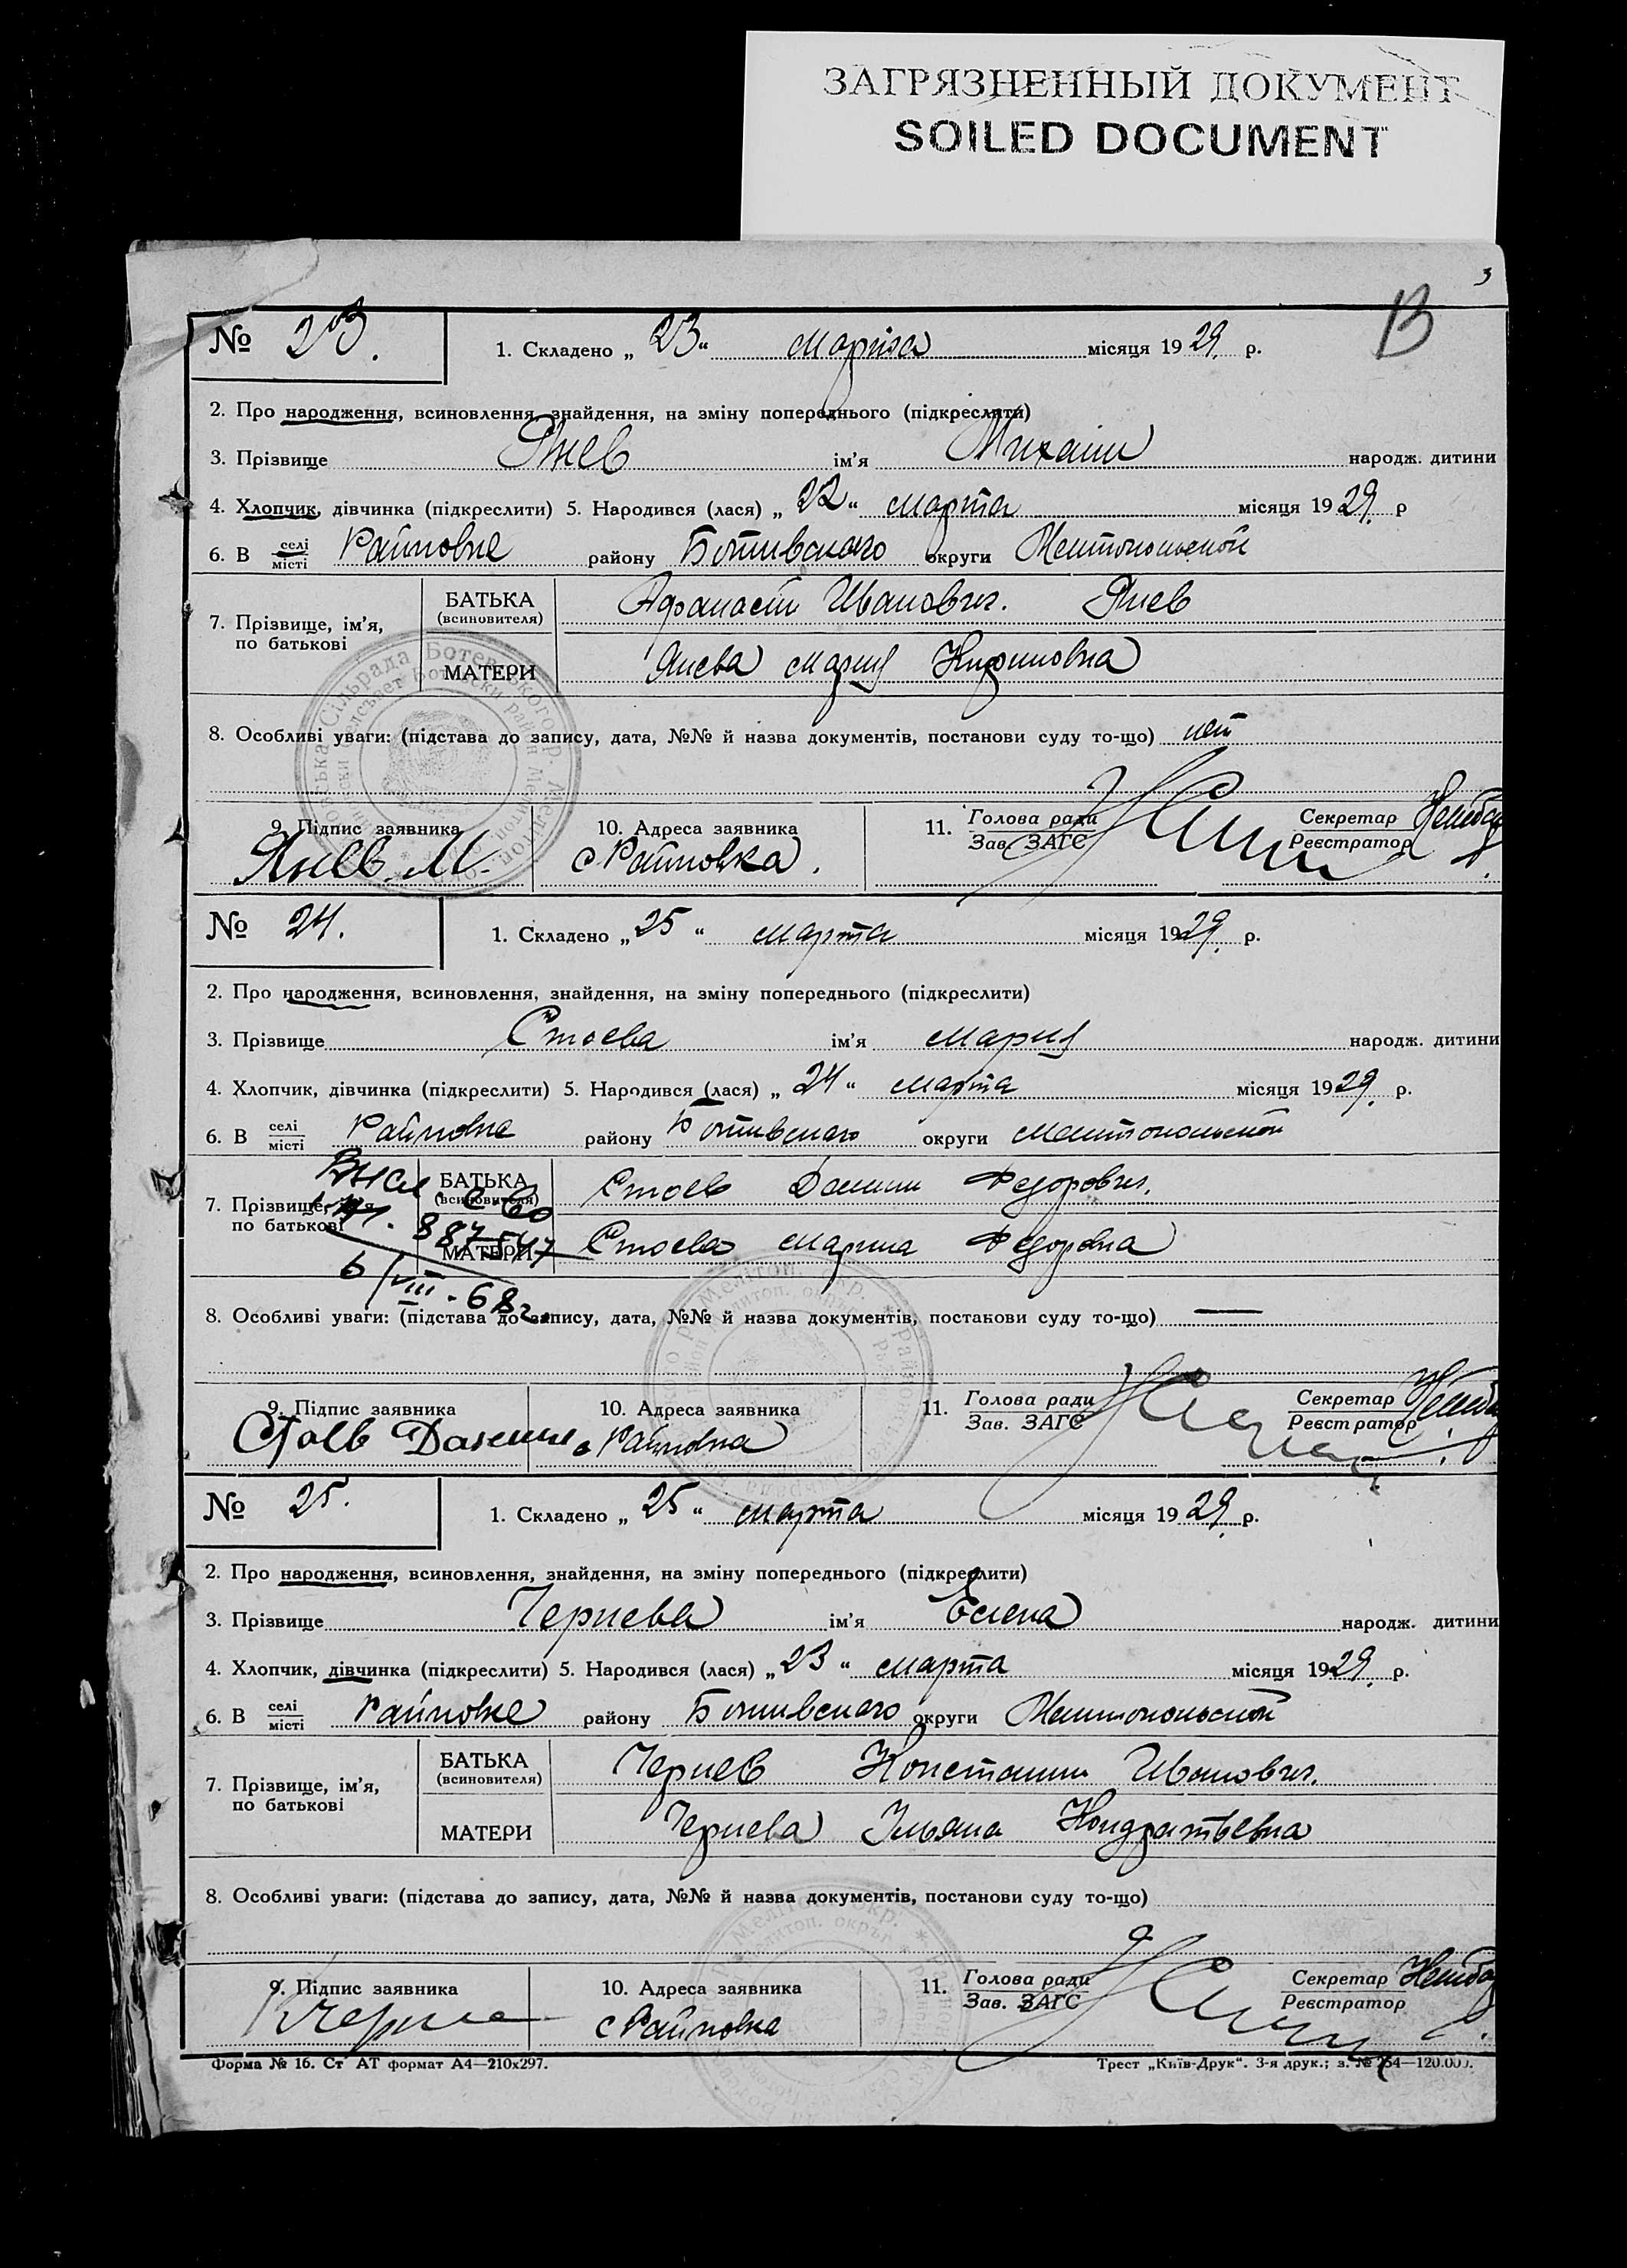 ЗАГРЯЗНЕННЫЙ ДОКУМЕНТ
SOILED DOCUMENT
3
13
№ 23. 1. Складено „23“ марта місяця 1929. р.
2. Про народження, всиновлення, знайдення, на зміну попереднього (підкреслити)
3. Прізвище Янев ім’я Михаил народж. дитини
4. Хлопчик, дівчинка (підкреслити) 5. Народився (лася) „22“ марта місяця 1929. р
6. В селі/місті Райновке району Ботивского округи Мелитопольской
7. Прізвище, ім’я, по батькові
БАТЬКА (всиновителя) Афанасий Иванович. Янев
МАТЕРИ Янева Мария Кириловна
8. Особливі уваги: (підстава до запису, дата, №№ й назва документів, постанови суду то-що) нет
9. Підпис заявника 10. Адреса заявника 11. Голова ради Секретар
Зав. ЗАГС Реєстратор
Янев М. с Райновка.
№ 24. 1. Складено „25“ марта місяця 1929. р.
2. Про народження, всиновлення, знайдення, на зміну попереднього (підкреслити)
3. Прізвище Стоева ім’я Мария народж. дитини
4. Хлопчик, дівчинка (підкреслити) 5. Народився (лася) „24“ марта місяця 1929. р.
6. В селі/місті Райновке району Ботивского округи Мелитопольской
7. Прізвище, ім’я, по батькові
БАТЬКА (всиновителя) Стоев Данил Федорович.
МАТЕРИ Стоева Марина Федоровна
887547
6/VIII-68г.
8. Особливі уваги: (підстава до запису, дата, №№ й назва документів, постанови суду то-що) —
9. Підпис заявника 10. Адреса заявника 11. Голова ради Секретар
Зав. ЗАГС Реєстратор
Стоев Данил с Райновка
№ 25. 1. Складено „25“ марта місяця 1929. р.
2. Про народження, всиновлення, знайдення, на зміну попереднього (підкреслити)
3. Прізвище Чернева ім’я Елена народж. дитини
4. Хлопчик, дівчинка (підкреслити) 5. Народився (лася) „23“ марта місяця 1929. р.
6. В селі/місті Райновке району Ботивского округи Мелитопольской
7. Прізвище, ім’я, по батькові
БАТЬКА (всиновителя) Чернев Константин Иванович.
МАТЕРИ Чернева Ульяна Кондратьевна
8. Особливі уваги: (підстава до запису, дата, №№ й назва документів, постанови суду то-що)
9. Підпис заявника 10. Адреса заявника 11. Голова ради Секретар
Зав. ЗАГС Реєстратор
с Райновка
Форма № 16. Ст АТ формат А4—210x297. Трест „Київ-Друк“. 3-я друк.; з. № 254—120.000.